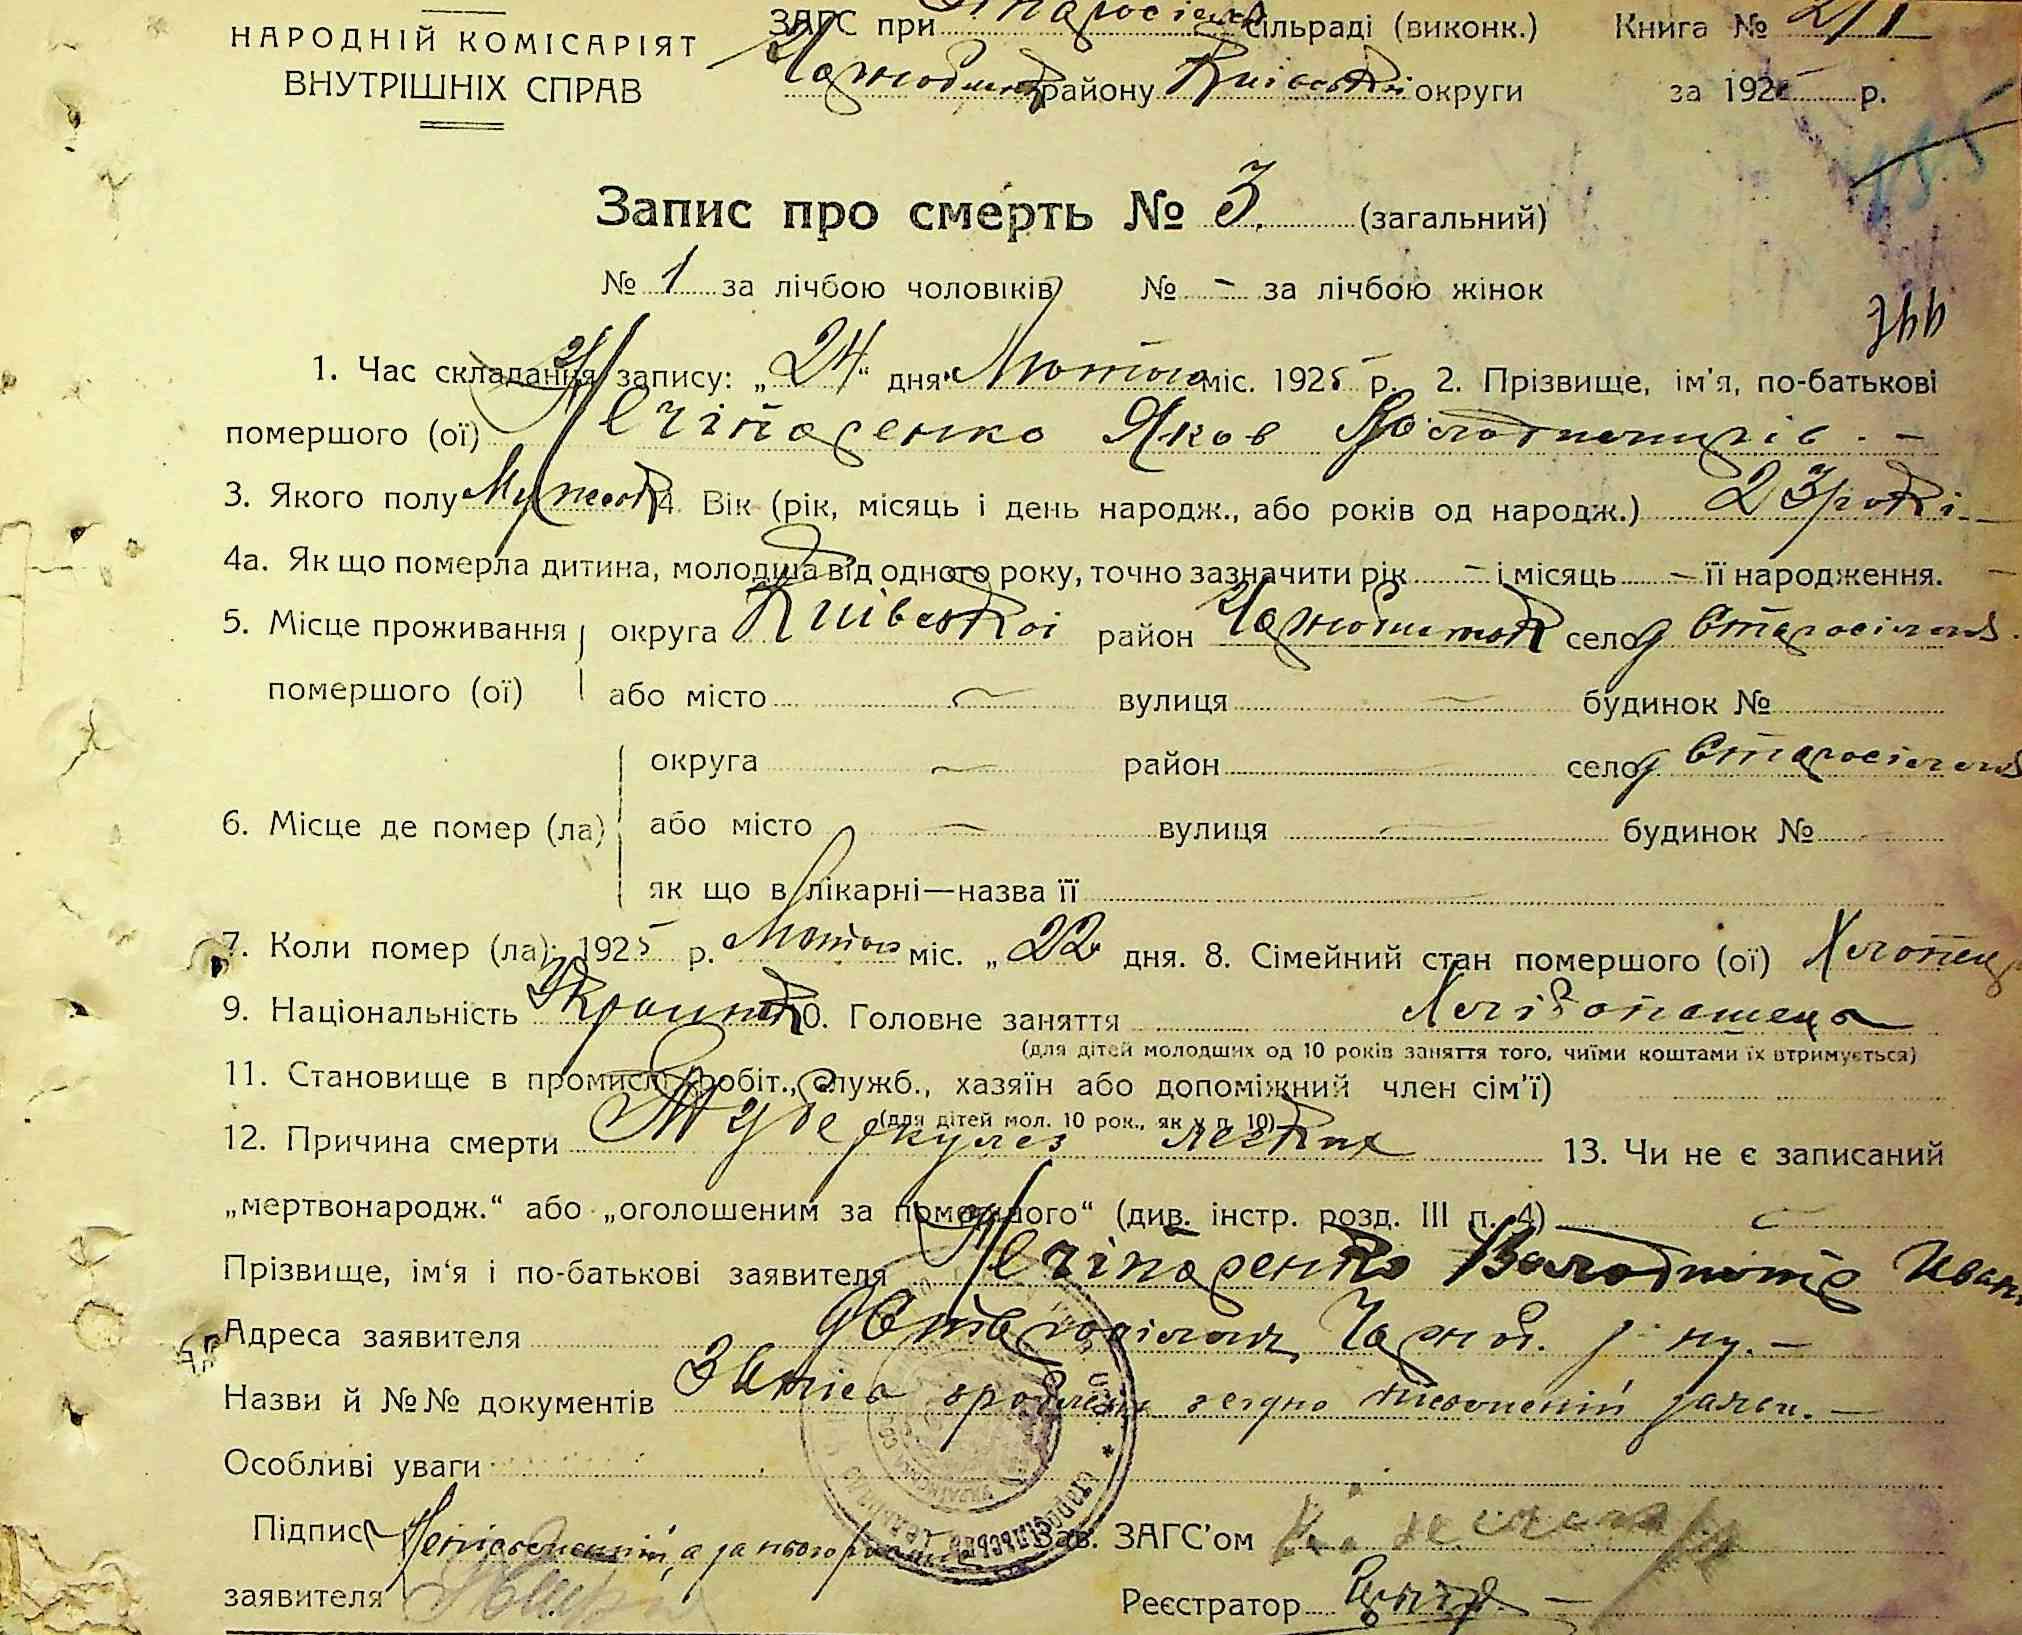 НАРОДНІЙ КОМІСАРІЯТ
ВНУТРІШНІХ СПРАВ
ЗАГС при сільраді (виконк.) Книга № 2/1
району Київської округи за 1925 р.
Запис про смерть № 3 (загальний)
№ 1 за лічбою чоловіків № - за лічбою жінок
1. Час складання запису: „24“ дня Лютого міс. 1925 р. 2. Прізвище, ім'я, по-батькові
помершого (ої) Нечіпоренко Яков Володимирів. -
3. Якого полу Мужеск 4. Вік (рік, місяць і день народж., або років од народж.) 23 роки -
4а. Як що померла дитина, молодша від одного року, точно зазначити рік - і місяць - її народження. -
5. Місце проживання округа Київської район село Старосілля
помершого (ої) або місто вулиця будинок №
округа район село Старосілля
6. Місце де помер (ла) або місто вулиця будинок №
як що в лікарні—назва її
7. Коли помер (ла): 1925 р. Лютого міс. „22 дня. 8. Сімейний стан помершого (ої) Хлопець
9. Національність Украинск 10. Головне заняття Хлібопашець
(для дітей молодших од 10 років заняття того, чиїми коштами їх втримується)
11. Становище в промислі (робіт., служб., хазяїн або допоміжний член сім'ї)
(для дітей мол. 10 рок., як у п. 10)
12. Причина смерти Туберкулез легких 13. Чи не є записаний
„мертвонародж.“ або „оголошеним за померлого“ (див. інстр. розд. III п. 4)
Прізвище, ім'я і по-батькові заявителя Нечіпоренко Володимір Иван
Адреса заявителя Старосілля, Чорноб. р-ну. -
Назви й №№ документів Запіс зроблен згідно словесній заяви. -
Особливі уваги
Підпис Неписьменний, а за нього Зав. ЗАГС'ом
заявителя Реєстратор